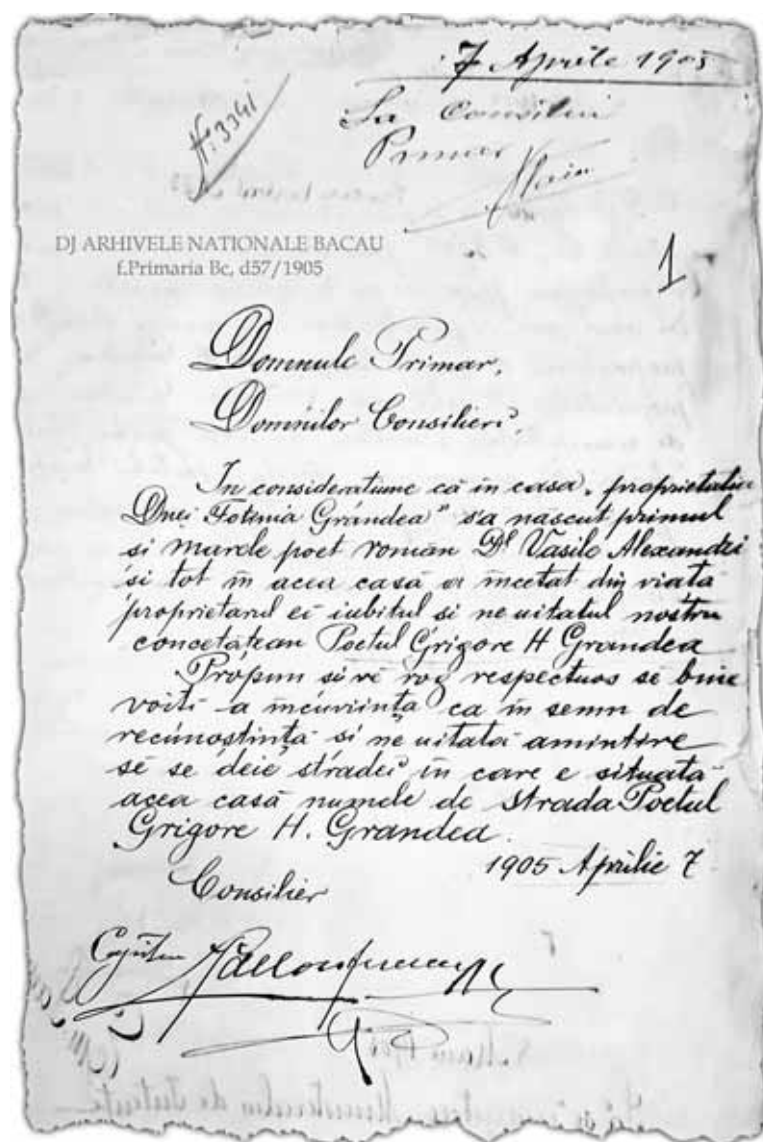 7 Aprile 1905
La Consiliu
Primar
No 3341
DJ ARHIVELE NATIONALE BACAU
f.Primaria Bc, d57/1905
1
Domnule Primar,
Domnilor Consilieri,
In consideratiune că in casa „proprietatea
Dnei Fotinia Grandea" s'a nascut primul
si marele poet român Dl Vasile Alexandri
si tot in acea casă a incetat din viată
proprietarul ei iubitul si ne uitatul nostru
concetătean Poetul Grigore H Grandea
Propun si vĕ rog respectuos se bine
voiti a incuviința ca in semn de
recunoștintă si ne uitată amintire
sĕ se deie stradei in care e situată
acea casă numele de Strada Poetul
Grigore H. Grandea.
1905 Aprilie 7
Consilier
Capitan